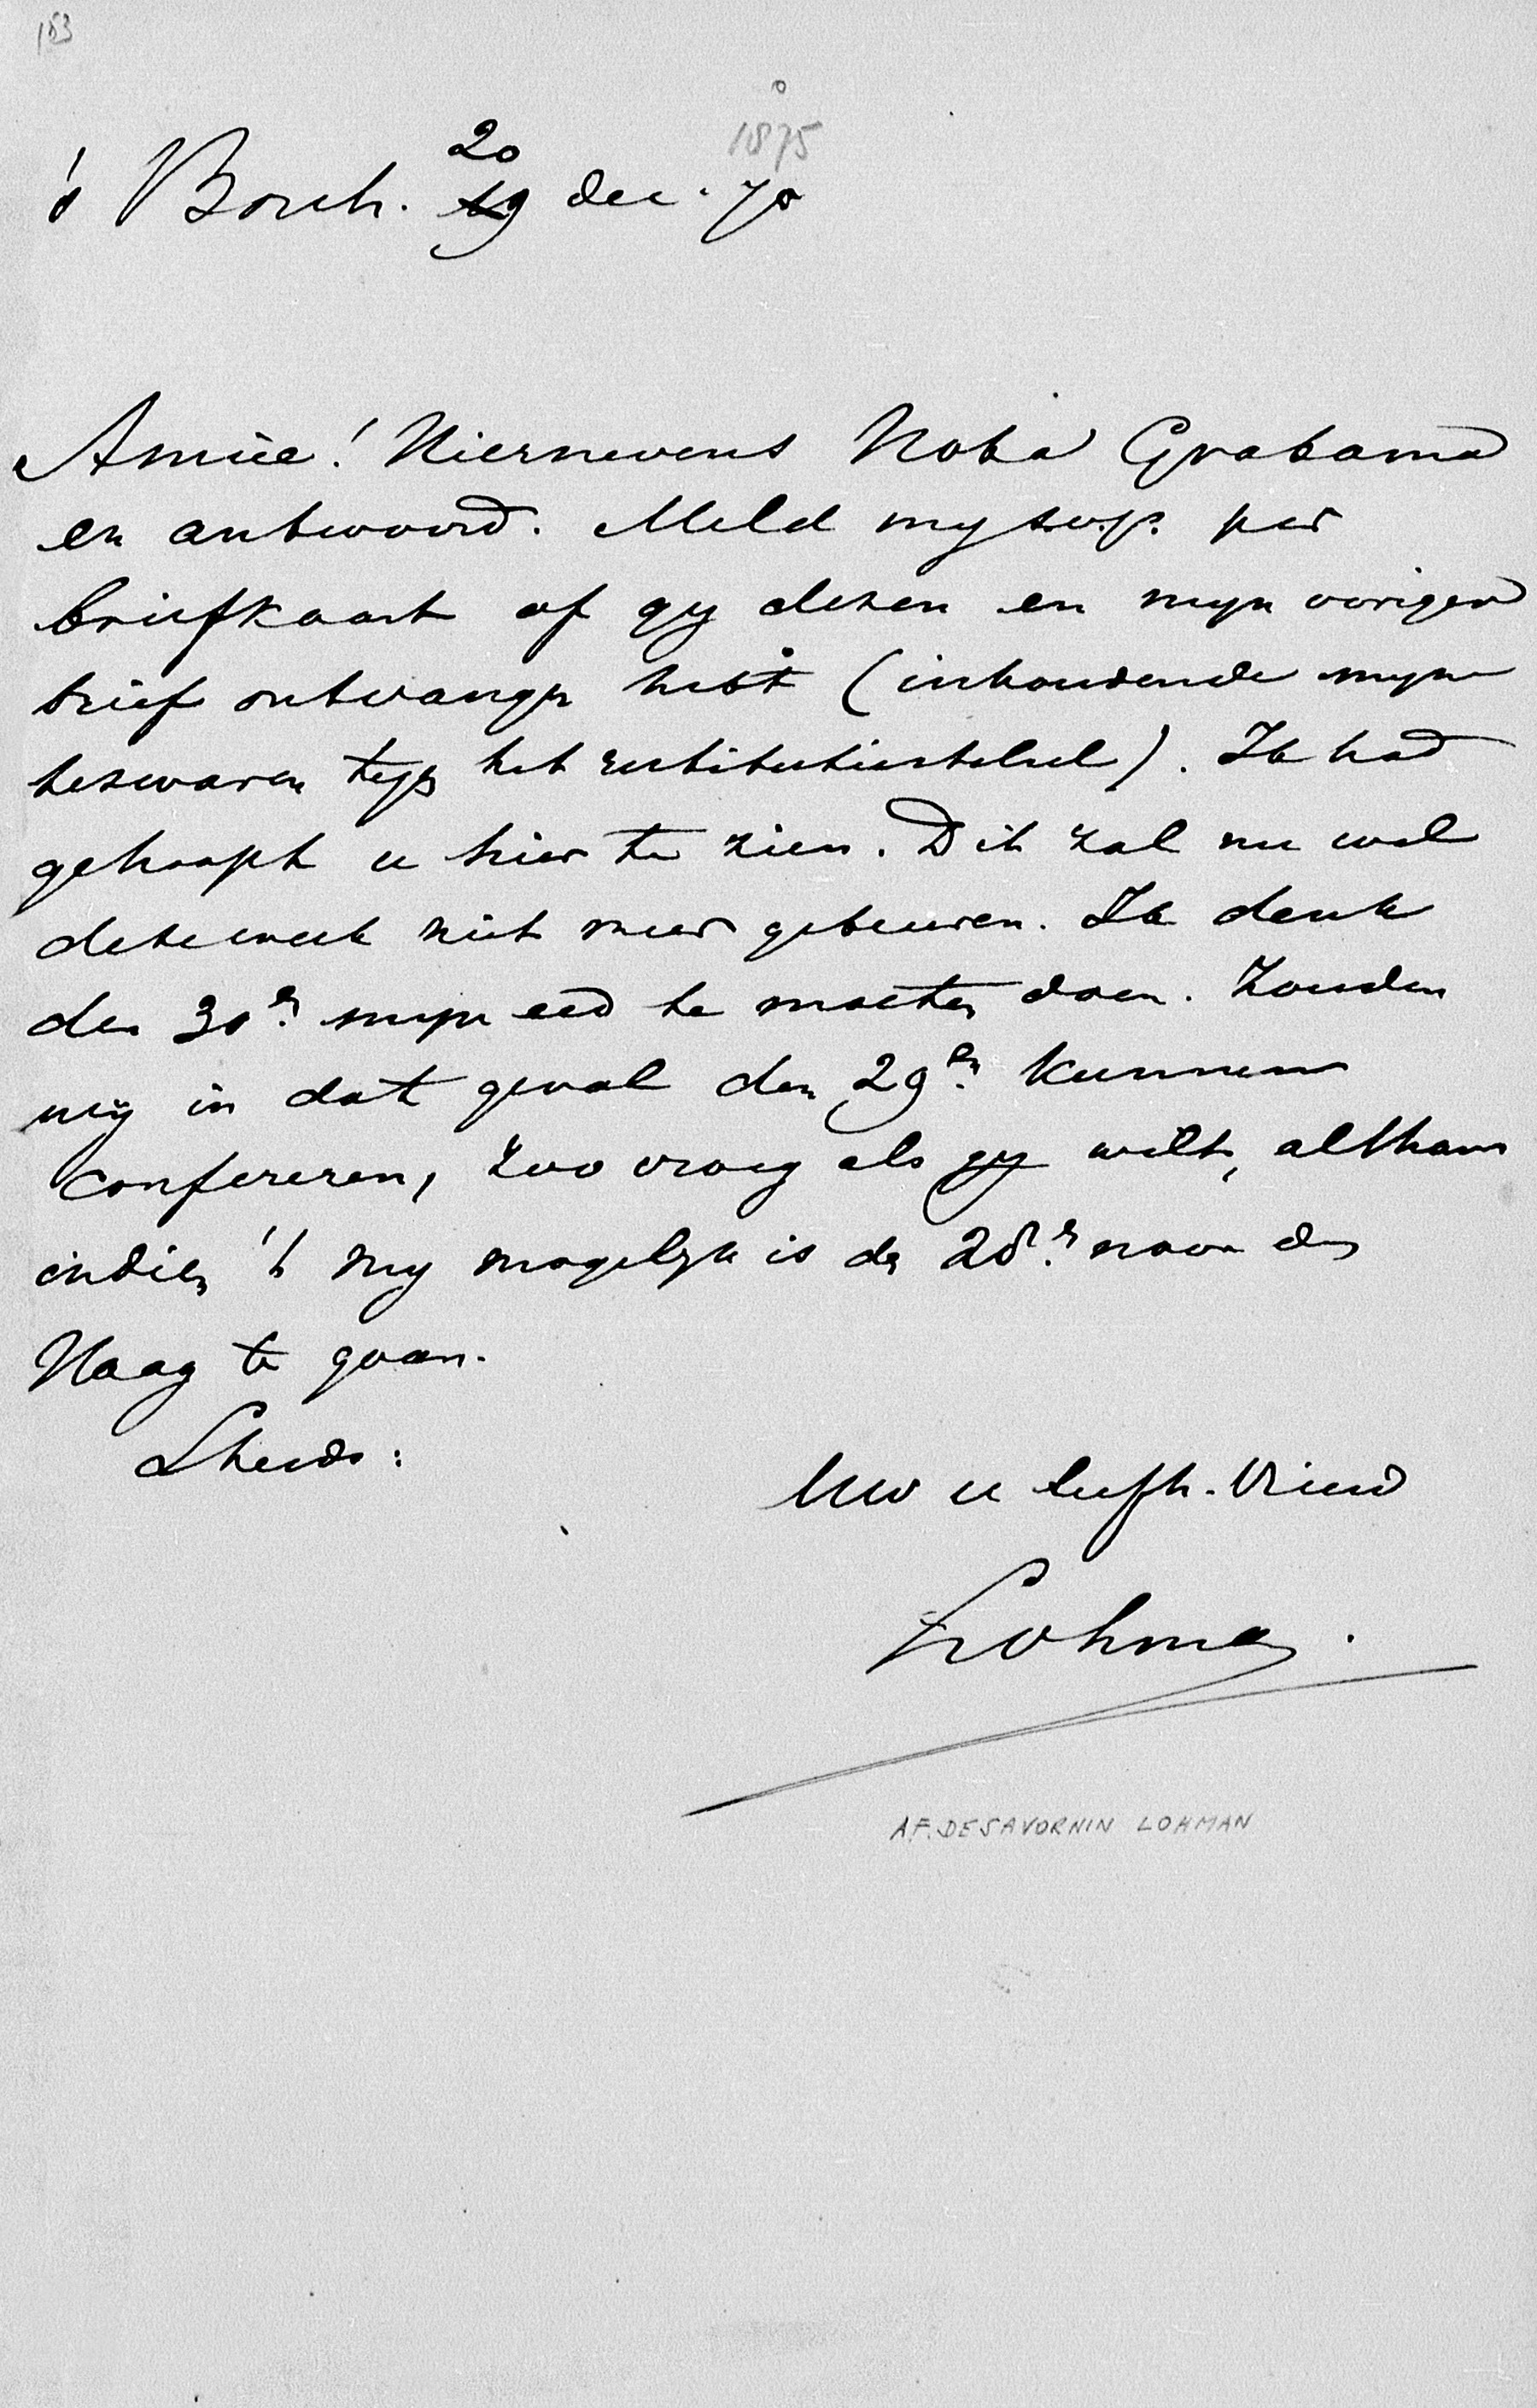 183
1875
's Bosch. 20 19 dec. 75
Amice! Hiernevens Nota Gratama
en antwoord. Meld mij s.v.p. per
briefkaart of gy dezen en myn vorigen
brief ontvangen hebt (inhoudende myne
bezwaren tegen het restitutiestelsel). Ik had
gehoopt u hier te zien. Dit zal nu wel
deze week niet meer gebeuren. Ik denk
den 30en myn eed te moeten doen. Zouden
wij in dat geval den 29en kunnen
confereren, zoo vroeg als gy wilt, althans
indien 't my mogelyk is den 28en naar den
Haag te gaan.
Steeds:
Uw u liefh. Vriend
Lohman.
A.F. DE SAVORNIN LOHMAN